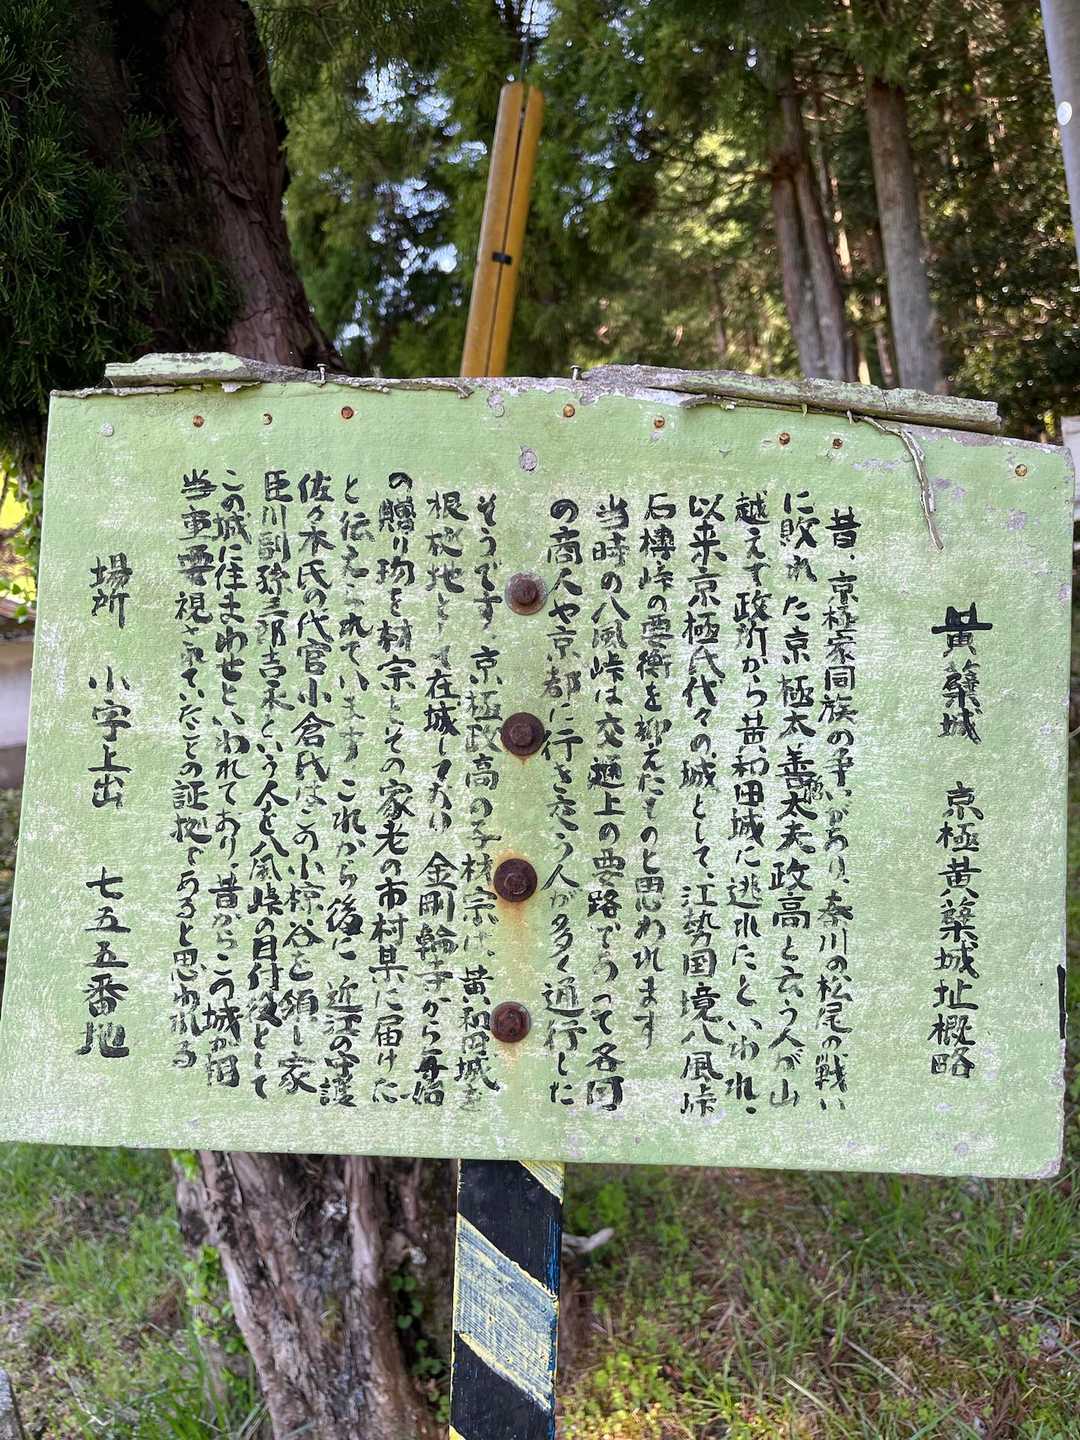 黄蘗城 京極黄蘗城址概略
昔、京極家同族の争いがあり、秦川の松尾の戦い
に敗れた京極太善太夫政高と云う人が山
越えす政所から黄和田城に逃れたといわれ、
以来京極氏代々の城として、江勢国境八風峠
石榑峠の要衝を抑えたものと思われます
当時の八風峠は交通上の要路であって各国
の商人や京都に行き交う人が多く通行した
そうです、京極政高の子材宗は、黄和田城を
根拠地として在城しており 金剛輪寺から年始
の贈り物を材宗とその家老の市村某に届けた
と伝えられています これから後に 近江の守護
佐々木氏の代官小倉氏はこの小椋谷を領し家
臣川副弥三郎吉永という人を八風峠の目付役として
この城に住まわせといわれており、昔からこの城が相
当重要視されていたことの証拠であると思われる
場所 小字上出 七五五番地